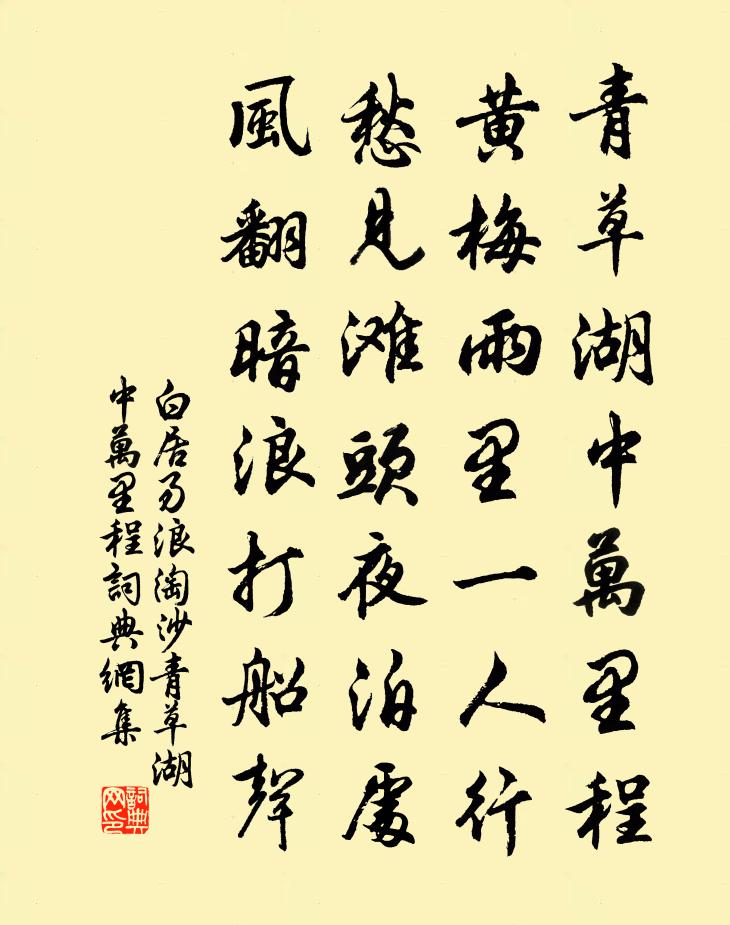 青草湖中萬里程
黄梅雨里一人行
愁見滩頭夜泊處
風翻暗浪打船聲
白居易浪淘沙青草湖
中萬里程詞典網集
詞典
网印